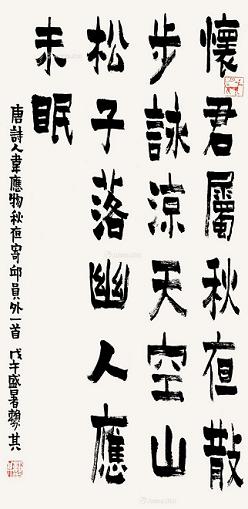 懷君屬秋夜散
步詠涼天空山
松子落幽人應
未眠
唐詩人韋應物秋夜寄邱員外一首 戊午盛暑